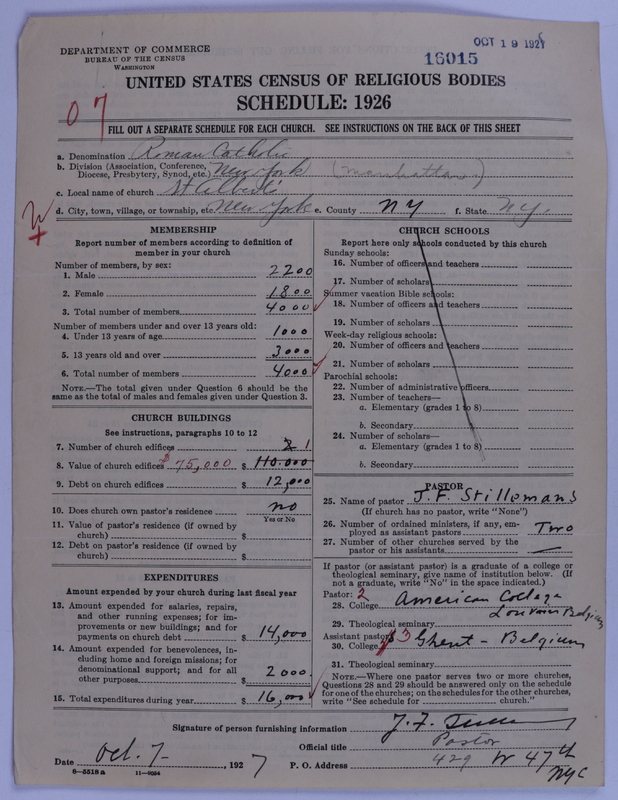 DEPARTMENT OF COMMERCE
BUREAU OF THE CENSUS
WASHINGTON
OCT 19 1927
16015
UNITED STATES CENSUS OF RELIGIOUS BODIES
SCHEDULE: 1926
07
FILL OUT A SEPARATE SCHEDULE FOR EACH CHURCH. SEE INSTRUCTIONS ON THE BACK OF THIS SHEET
a. Denomination Roman Catholic
b. Division (Association, Conference, Diocese, Presbytery, Synod, etc.) New York (Manhattan)
c. Local name of church St Albert
d. City, town, village, or township, etc. New York e. County NY f. State NY.
MEMBERSHIP
Report number of members according to definition of
member in your church
Number of members, by sex:
1. Male 2200
2. Female 1800
3. Total number of members 4000
Number of members under and over 13 years old:
4. Under 13 years of age 1000
5. 13 years old and over 3000
6. Total number of members 4000
NOTE.—The total given under Question 6 should be the
same as the total of males and females given under Question 3.
CHURCH BUILDINGS
See instructions, paragraphs 10 to 12
7. Number of church edifices 2 1
8. Value of church edifices $75,000 $ 110.000
9. Debt on church edifices $ 12,000
10. Does church own pastor's residence no
Yes or No
11. Value of pastor's residence (if owned by
church) $
12. Debt on pastor's residence (if owned by
church) $
EXPENDITURES
Amount expended by your church during last fiscal year
13. Amount expended for salaries, repairs,
and other running expenses; for im-
provements or new buildings; and for
payments on church debt $ 14,000
14. Amount expended for benevolences, in-
cluding home and foreign missions; for
denominational support; and for all
other purposes $ 2000
15. Total expenditures during year $ 16,000
CHURCH SCHOOLS
Report here only schools conducted by this church
Sunday schools:
16. Number of officers and teachers
17. Number of scholars
Summer vacation Bible schools:
18. Number of officers and teachers
19. Number of scholars
Week-day religious schools:
20. Number of officers and teachers
21. Number of scholars
Parochial schools:
22. Number of administrative officers
23. Number of teachers—
a. Elementary (grades 1 to 8)
b. Secondary
24. Number of scholars—
a. Elementary (grades 1 to 8)
b. Secondary
PASTOR
25. Name of pastor J. F. Stillemans
(If church has no pastor, write "None")
26. Number of ordained ministers, if any, em-
ployed as assistant pastors Two
27. Number of other churches served by the
pastor or his assistants —
If pastor (or assistant pastor) is a graduate of a college or
theological seminary, give name of institution below. (If
not a graduate, write "No" in the space indicated.)
Pastor: 2
28. College American College
Louvain Belgium
29. Theological seminary
Assistant pastor: 3
30. College Ghent - Belgium
31. Theological seminary
NOTE.—Where one pastor serves two or more churches,
Questions 28 and 29 should be answered only on the schedule
for one of the churches; on the schedules for the other churches,
write "See schedule for church."
Signature of person furnishing information J. F.
Official title Pastor
Date Oct. 7- , 1927 P. O. Address 429 W 47th
NYC
8—5518a 11—9034